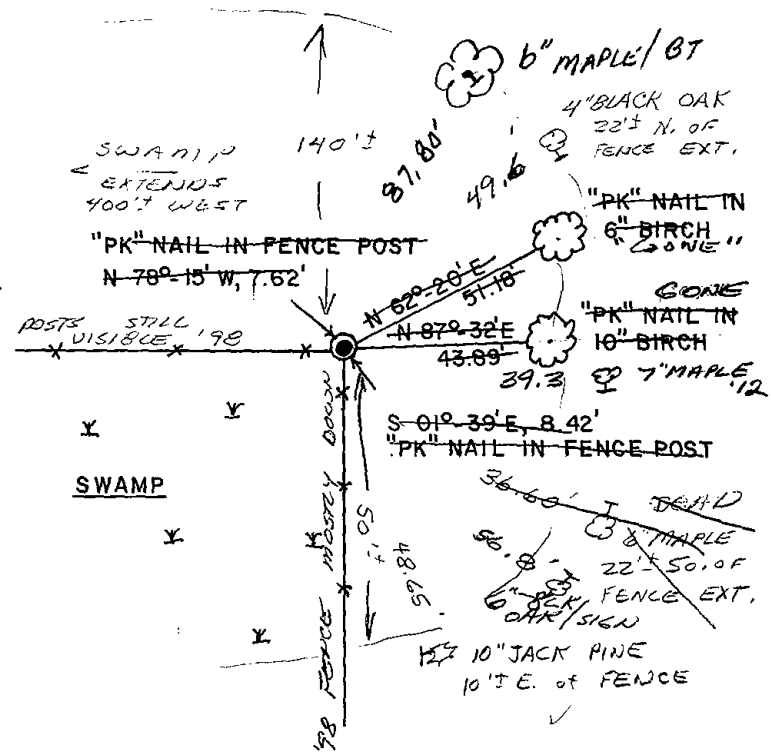 6" MAPLE/BT
4" BLACK OAK
22'± N. OF
FENCE EXT.
140'±
SWAMP
EXTENDS
400'± WEST
87.80'
49.6
"PK" NAIL IN
6" BIRCH
"GONE"
"PK" NAIL IN FENCE POST
N 78°-15' W, 7.62'
N 62°-20' E
51.18'
GONE
"PK" NAIL IN
10" BIRCH
N 87°-32' E
43.89'
POSTS STILL
VISIBLE '98
39.3
7" MAPLE
'12
S 01°-39' E, 8.42'
"PK" NAIL IN FENCE POST
SWAMP
'98 FENCE MOSTLY DOWN
50'±
48.65
36.60'
DEAD
8" MAPLE
22'± SO. OF
FENCE EXT.
56.8'
6" BLK
OAK/SIGN
10" JACK PINE
10'± E. of FENCE